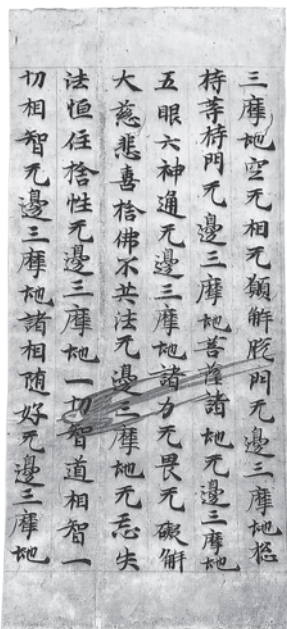 三摩地空无相无願解脫門无邊三摩地惣
持等持門无邊三摩地菩薩諸地无邊三摩地
五眼六神通无邊三摩地諸力无畏无礙解
大慈悲喜捨佛不共法无邊三摩地无忘失
法恒住捨性无邊三摩地一切智道相智一
切相智无邊三摩地諸相随好无邊三摩地